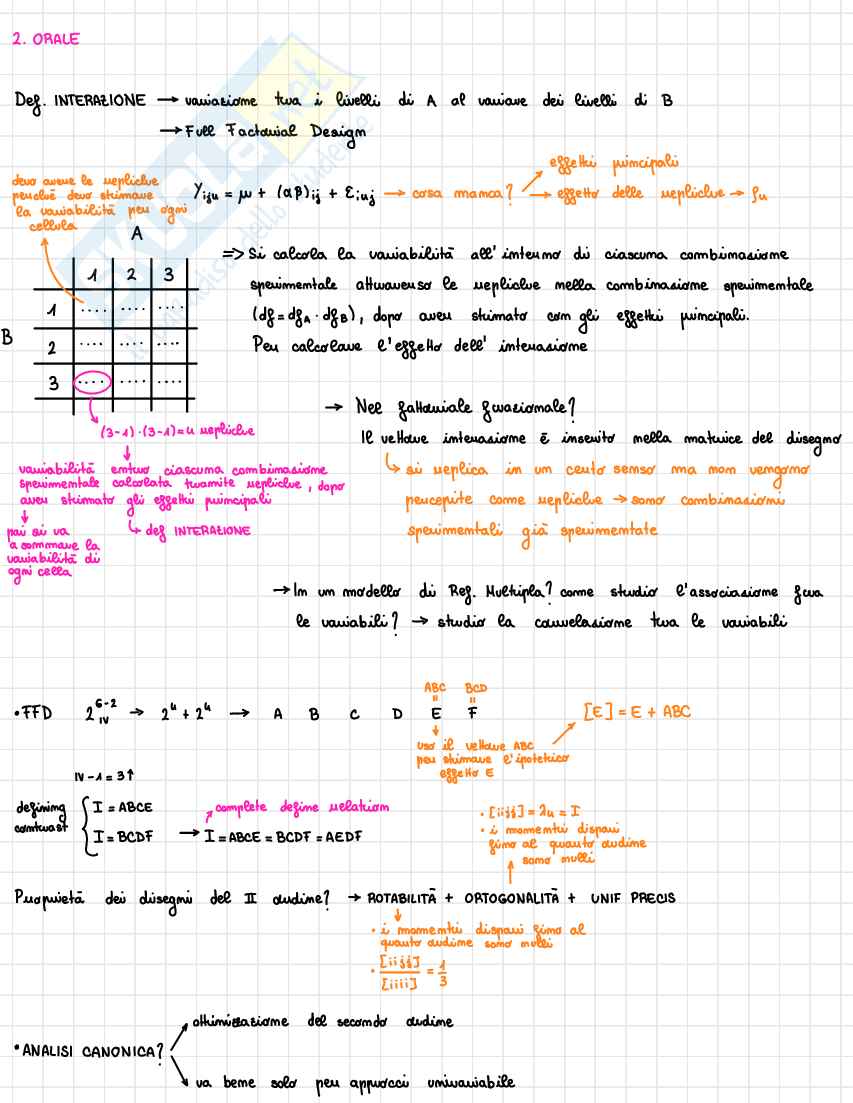 2. ORALE
Def. INTERAZIONE → variazione tra i livelli di A al variare dei livelli di B
→ Full Factorial Design
devo avere le repliche
perché devo stimare
la variabilità per ogni
cellula
Yiju = μ + (αβ)ij + εiuj → cosa manca?
effetti principali
→ effetto delle repliche → ρu
A
1 2 3
1 .... .... ....
B
2 .... .... ....
3 .... .... ....
=> Si calcola la variabilità all'interno di ciascuna combinazione
sperimentale attraverso le repliche nella combinazione sperimentale
(df = dfA · dfB), dopo aver stimato con gli effetti principali.
Per calcolare l'effetto dell' interazione
(3-1)·(3-1)=4 repliche
variabilità entro ciascuna combinazione
sperimentale calcolata tramite repliche, dopo
aver stimato gli effetti principali
↳ def INTERAZIONE
poi si va
a sommare la
variabilità di
ogni cella
→ Nel fattoriale frazionale?
Il vettore interazione è inserito nella matrice del disegno
↳ si replica in un certo senso ma non vengono
percepite come repliche → sono combinazioni
sperimentali già sperimentate
→ In un modello di Reg. Multipla? come studio l'associazione fra
le variabili? → studio la correlazione tra le variabili
•FFD 2^{6-2}_{IV} → 2^4 + 2^4 → A B C D E F
ABC BCD
= =
[E] = E + ABC
uso il vettore ABC
per stimare l'ipotetico
effetto E
IV-1=3↑
defining
contrast
I = ABCE
I = BCDF
→ I = ABCE = BCDF = AEDF
complete define relation
• [iijj] = λ4 = I
• i momenti dispari
fino al quarto ordine
sono nulli
Proprietà dei disegni del II ordine? → ROTABILITÀ + ORTOGONALITÀ + UNIF PRECIS
• i momenti dispari fino al
quarto ordine sono nulli
• [iijj]/[iiii] = 1/3
• ANALISI CANONICA?
ottimizzazione del secondo ordine
va bene solo per approcci univariabile